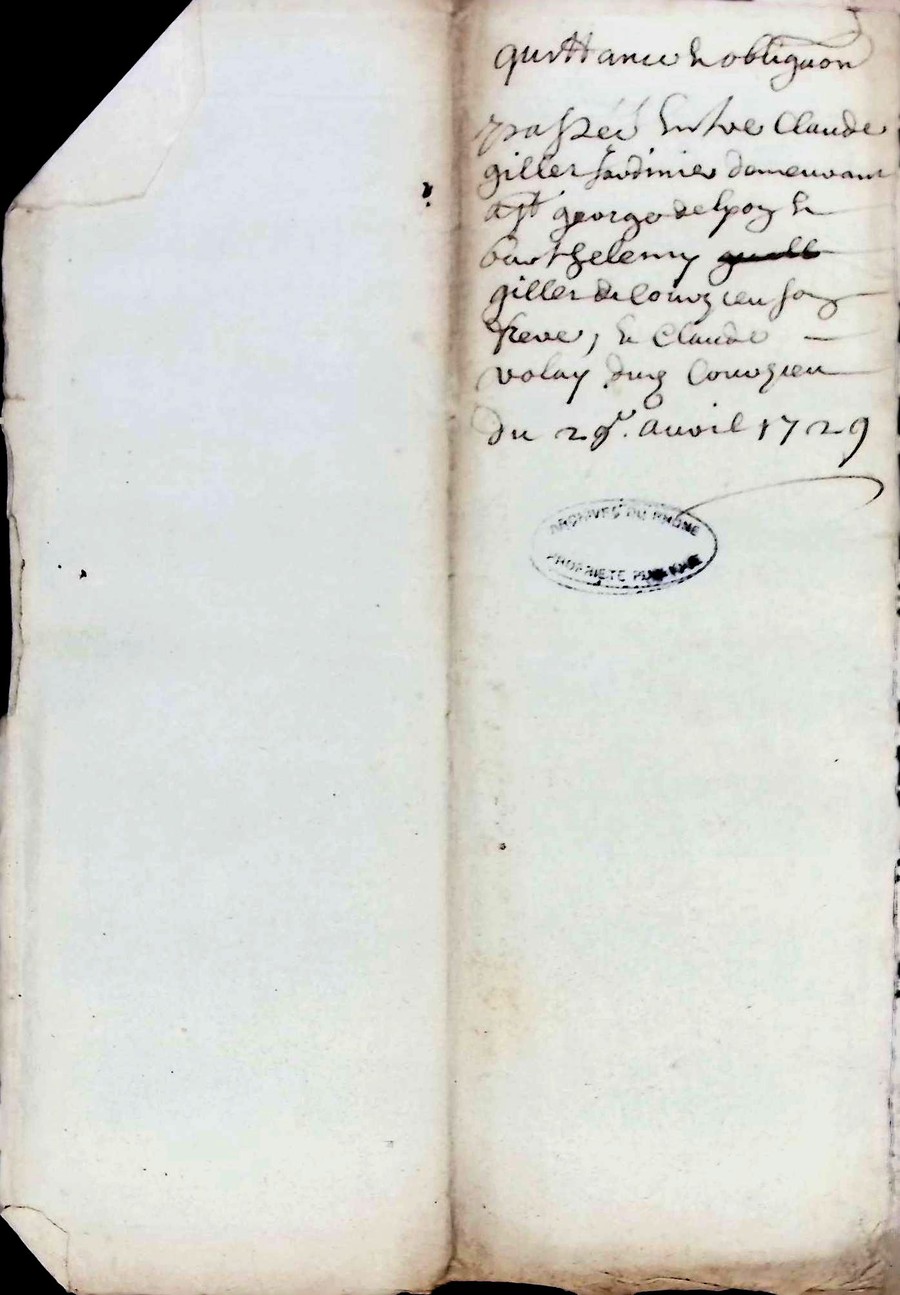 quittance et obliguon
passéé Entre Claude
giller Jardinier demeurant
a st george delpoy Et
barthelemy
giller de Courzieu son
frere, Et Claude
volay dud Courzieu
du 29e. auvril 1729
ARCHIVES DU RHÔNE
PROPRIÉTÉ PUBLIQUE